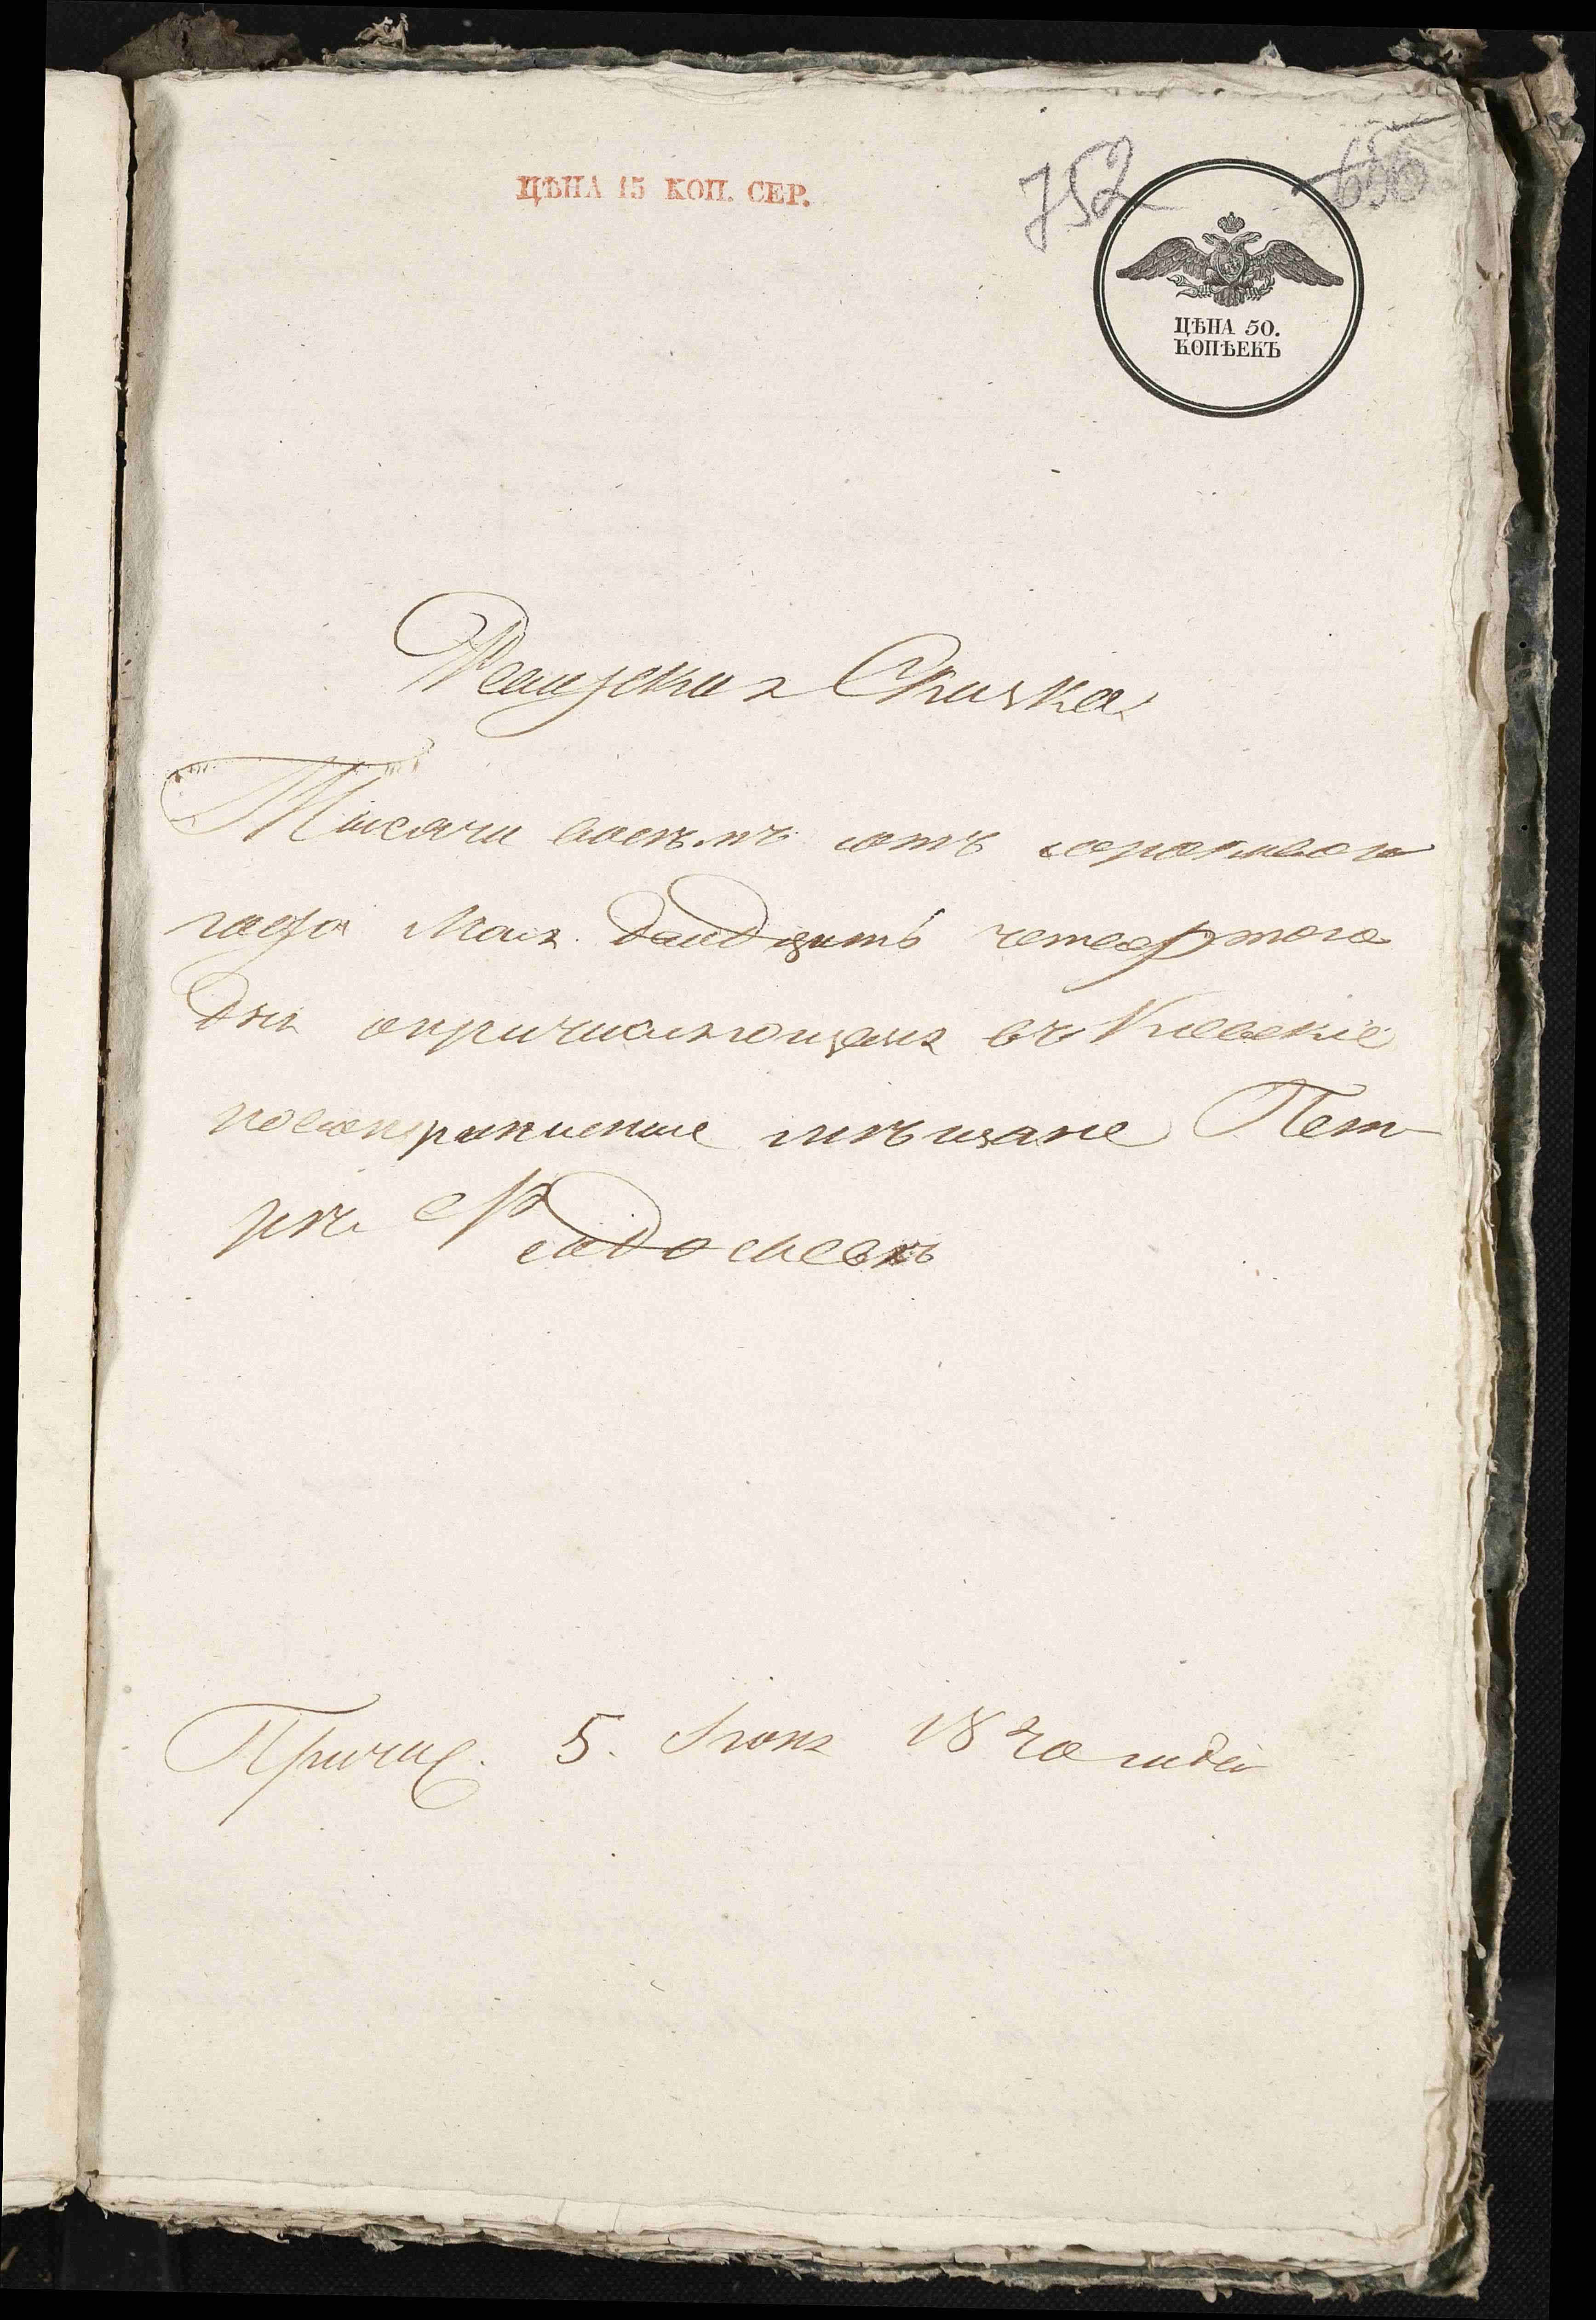 ЦѢНА 15 КОП. СЕР.
752
656
ЦѢНА 50.
КОПѢЕКЪ
Ревизская Сказка
Тысячи восемъ сотъ сороковаго
года Мая двадцать четвертаго
дня о причисляющемся въ Киевскіе
мѣщане Пет-
рѣ
Причис. 5. Іюня 1840 года